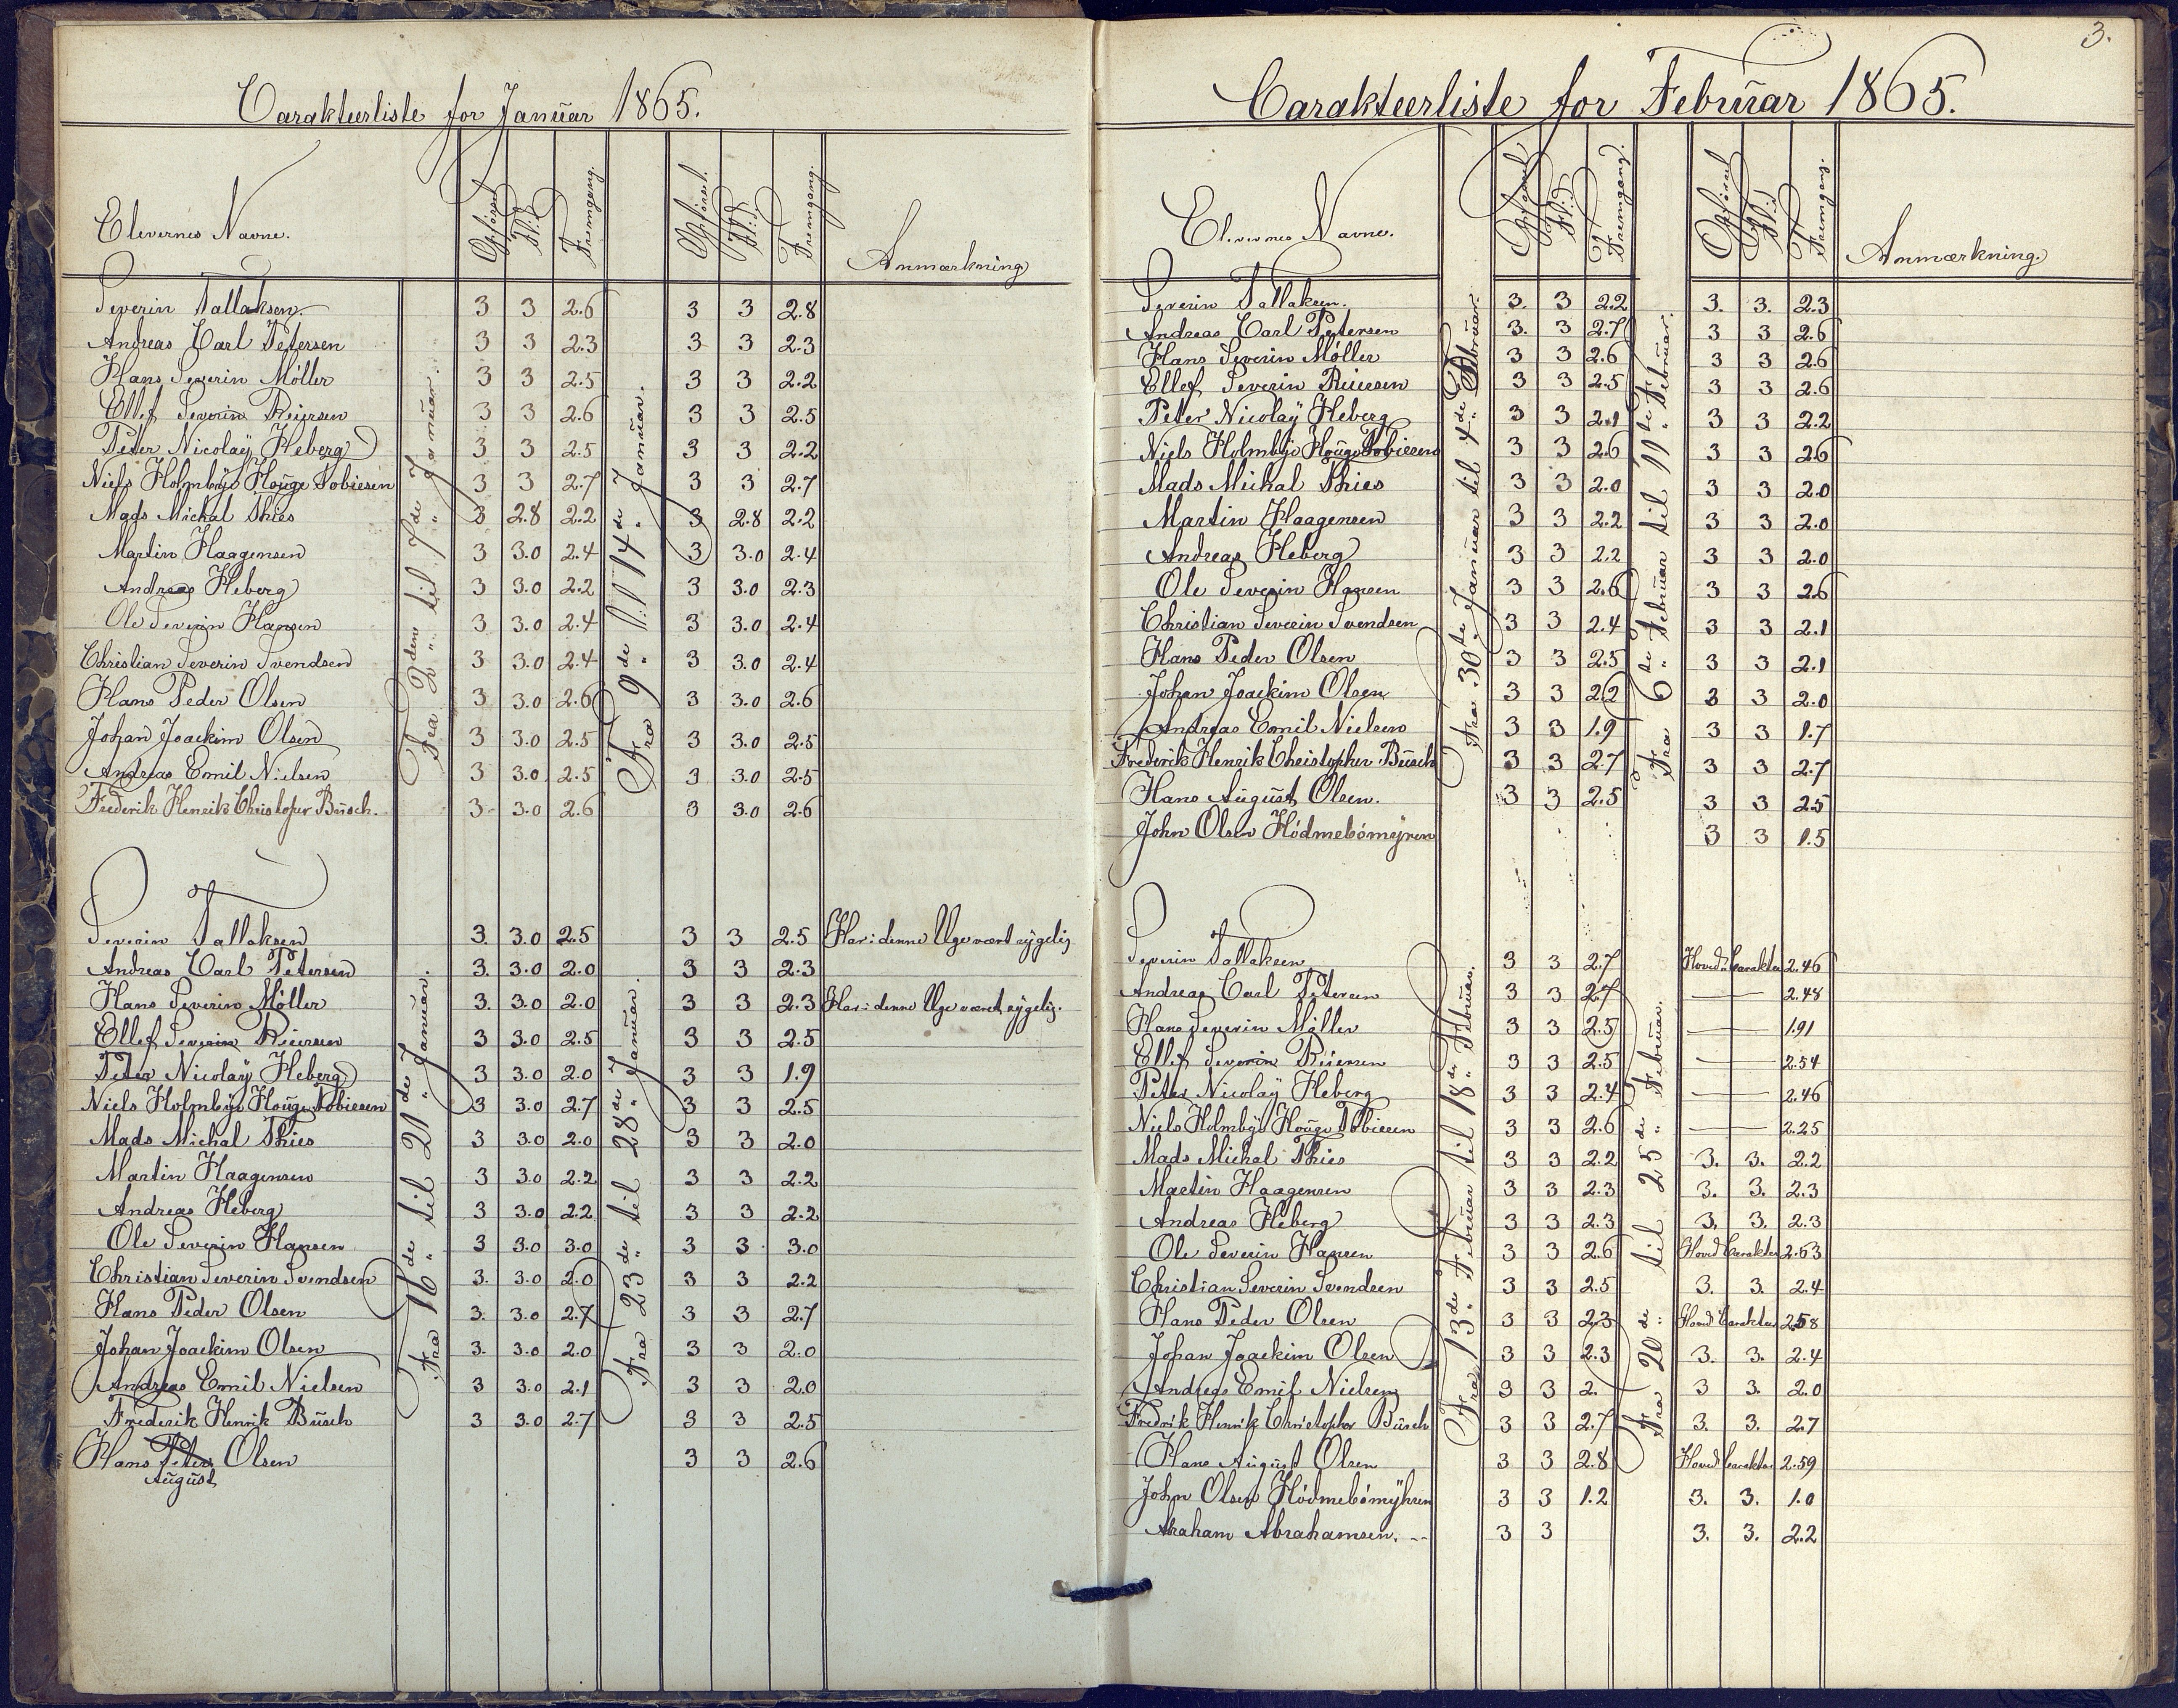 Carakteerliste for Januar 1865.
Elevernes Navne. Opførsel Flid Fremgang. Opførsel. Flid Fremgang. Anmærkning
Fra 2den til 7de Januar. Fra 9de til 14de Januar.
Severin Tallaksen. 3 3 2.6 3 3 2.8
Andreas Carl Petersen 3 3 2.3 3 3 2.3
Hans Severin Möller 3 3 2.5 3 3 2.2
Ellef Severin Reiersen 3 3 2.6 3 3 2.5
Peter Nicolaÿ Heberg 3 3 2.5 3 3 2.2
Niels Holmboe Houge Tobiesen 3 3 2.7 3 3 2.7
Mads Michal Thies 3 2.8 2.2 3 2.8 2.2
Martin Haagensen 3 3.0 2.4 3 3.0 2.4
Andreas Heberg 3 3.0 2.2 3 3.0 2.3
Ole Severin Hansen 3 3.0 2.4 3 3.0 2.4
Christian Severin Svendsen 3 3.0 2.4 3 3.0 2.4
Hans Peder Olsen 3 3.0 2.6 3 3.0 2.6
Johan Joackim Olsen 3 3.0 2.5 3 3.0 2.5
Andreas Emil Nielsen 3 3.0 2.5 3 3.0 2.5
Frederik Henrik Christofer Busch. 3 3.0 2.6 3 3.0 2.6
Fra 16de til 21de Januar. Fra 23de til 28de Januar.
Severin Tallaksen 3. 3.0 2.5 3 3 2.5 Har i denne Uge været sygelig
Andreas Carl Petersen 3. 3.0 2.0 3 3 2.3
Hans Severin Möller 3. 3.0 2.0 3 3 2.3 Har i denne Uge været sygelig.
Ellef Severin Reiersen 3 3.0 2.5 3 3 2.5
Peter Nicolaÿ Heberg 3 3.0 2.0 3 3 1.9
Niels Holmboe Houge Tobiesen 3 3.0 2.7 3 3 2.5
Mads Michal Thies 3 3.0 2.0 3 3 2.0
Martin Haagensen 3 3.0 2.2 3 3 2.2
Andreas Heberg 3 3.0 2.2 3 3 2.2
Ole Severin Hansen 3 3.0 3.0 3 3 3.0
Christian Severin Svendsen 3. 3.0 2.0 3 3 2.2
Hans Peder Olsen 3. 3.0 2.7 3 3 2.7
Johan Joackim Olsen 3. 3.0 2.0 3 3 2.0
Andreas Emil Nielsen 3 3.0 2.1 3 3 2.0
Frederik Henrik Busch 3 3.0 2.7 3 3 2.5
Hans Peter Olsen 3 3 2.6
August
3.
Carakteerliste for Februar 1865.
Elevernes Navne. Opførsel Flid Fremgang. Opførsel Flid Fremgang. Anmærkning.
Fra 30te Januar til 4de Februar. Fra 6te Februar til 11te Februar.
Severin Tallaksen. 3. 3 2.2 3. 3. 2.3
Andreas Carl Petersen 3. 3 2.7 3 3 2.6
Hans Severin Möller 3 3 2.6 3 3 2.6
Ellef Severin Reiersen 3 3 2.5 3 3 2.6
Peter Nicolaÿ Heberg 3 3 2.1 3 3 2.2
Niels Holmboe Houge Tobiesen 3 3 2.6 3 3 2.6
Mads Michal Thies 3 3 2.0 3 3 2.0
Martin Haagensen 3 3 2.2 3 3 2.0
Andreas Heberg 3 3 2.2 3 3 2.0
Ole Severin Hansen 3 3 2.6 3 3 2.6
Christian Severin Svendsen 3 3 2.4 3 3 2.1
Hans Peder Olsen 3 3 2.5 3 3 2.1
Johan Joackim Olsen 3 3 2.2 3 3 2.0
Andreas Emil Nielsen 3 3 1.9 3 3 1.7
Frederik Henrik Christopher Busch 3 3 2.7 3 3 2.7
Hans August Olsen. 3 3 2.5 3 3 2.5
John Olsen Hödmebömyren 3 3 1.5
Fra 13de Februar til 18de Februar. Fra 20de til 25de Februar.
Severin Tallaksen 3 3 2.7 Hoved Carakter 2.46
Andreas Carl Petersen 3 3 2.7 — 2.48
Hans Severin Möller 3 3 2.5 — 1.91
Ellef Severin Reiersen 3 3 2.5 — 2.54
Peter Nicolaÿ Heberg 3 3 2.4 — 2.46
Niels Holmboe Houge Tobiesen 3 3 2.6 — 2.25
Mads Michal Thies 3 3 2.2 3. 3. 2.2
Martin Haagensen 3 3 2.3 3. 3. 2.3
Andreas Heberg 3 3 2.3 3. 3. 2.3
Ole Severin Hansen 3 3 2.6 Hoved Carakter 2.63
Christian Severin Svendsen 3 3 2.5 3. 3. 2.4
Hans Peder Olsen 3 3 2.3 Hoved Carakter 2.58
Johan Joackim Olsen 3 3 2.3 3. 3. 2.4
Andreas Emil Nielsen 3 3 2. 3 3. 2.0
Fredrik Henrik Christopher Busch 3 3 2.7 3. 3. 2.7
Hans August Olsen 3 3 2.8 Hoved Carakter 2.59
John Olsen Hödmebömÿhren 3 3 1.2 3. 3. 1.0
Abraham Abrahamsen. -- 3 3 3. 3. 2.2